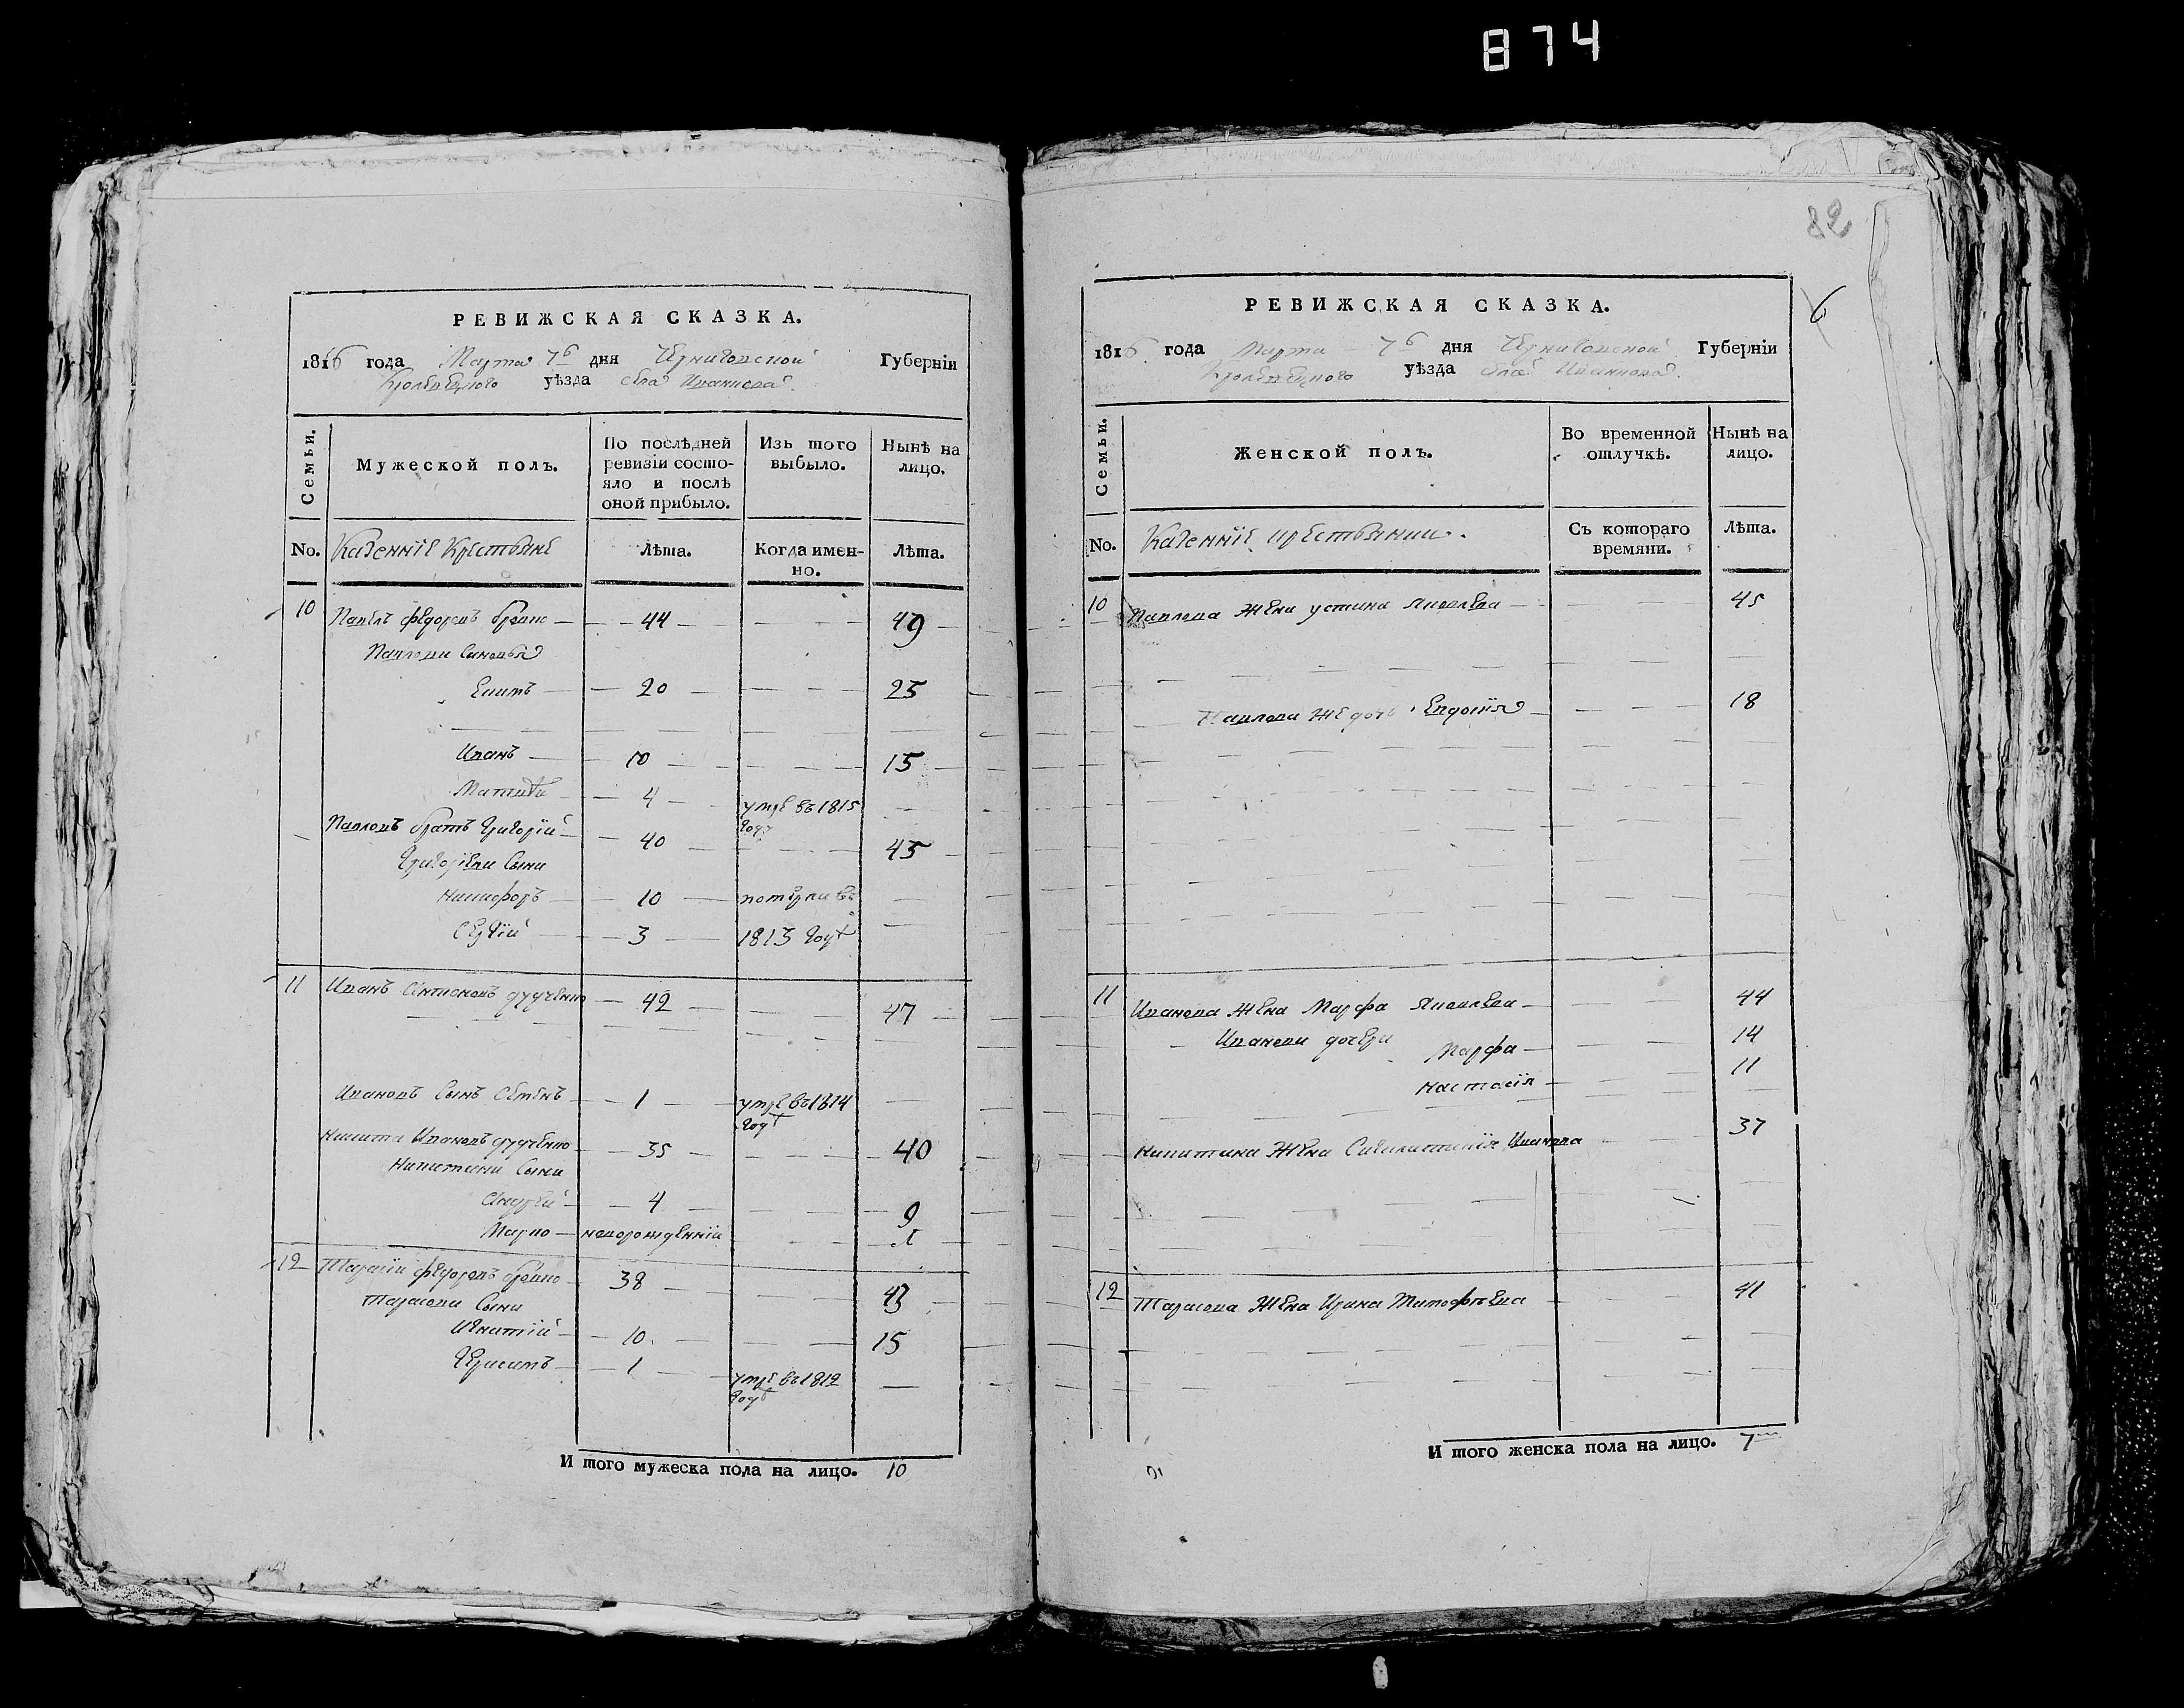 874
82
6
РЕВИЖСКАЯ СКАЗКА.
1816 года Марта 7го дня Черниговской Губерніи
Кролевецкого уѣзда села
Семьи.
Мужеской полъ.
По послѣдней ревизіи состояло и послѣ оной прибыло.
Изъ того выбыло.
Нынѣ на лицо.
No. Казенніе Крестьяне
Лѣта.
Когда именно.
Лѣта.
10 Павелъ Федоровъ 44 49
Павлови Синовья
20 25
Иванъ 10 15
Матвѣй 4 умре въ 1815 году
Павловъ братъ Григорій 40 45
Григорієви Сыни
Никифоръ 10 померли въ
Сергій 3 1813 году
11 Иванъ Антоновъ 42 47
Ивановъ Сынъ Семенъ 1 умре въ 1814 году
Никита Ивановъ 35 40
Никитини Сыни
Андрей 4 9
Марко новорожденній
12 Тарасій Федоровъ 38 43
Тарасови Сыни
Игнатій 10 15
Герасимъ 1 умре въ 1812 году
И того мужеска пола на лицо. 10
РЕВИЖСКАЯ СКАЗКА.
1816 года Марта 7го дня Черниговской Губерніи
Кролевецкого уѣзда села
Семьи.
Женской полъ.
Во временной отлучкѣ.
Нынѣ на лицо.
No. Казенніе крестьянки.
Съ котораго времяни.
Лѣта.
10 Павлова Жена Устина Яковлева 45
Павлова же дочь Евдокія 18
11 Иванова Жена Марфа Яковлева 44
Иванови дочери Марфа 14
Настасія 11
Никитина Жена Иванова 37
12 Тарасова Жена Ирина Тимофѣева 41
И того женска пола на лицо. 7